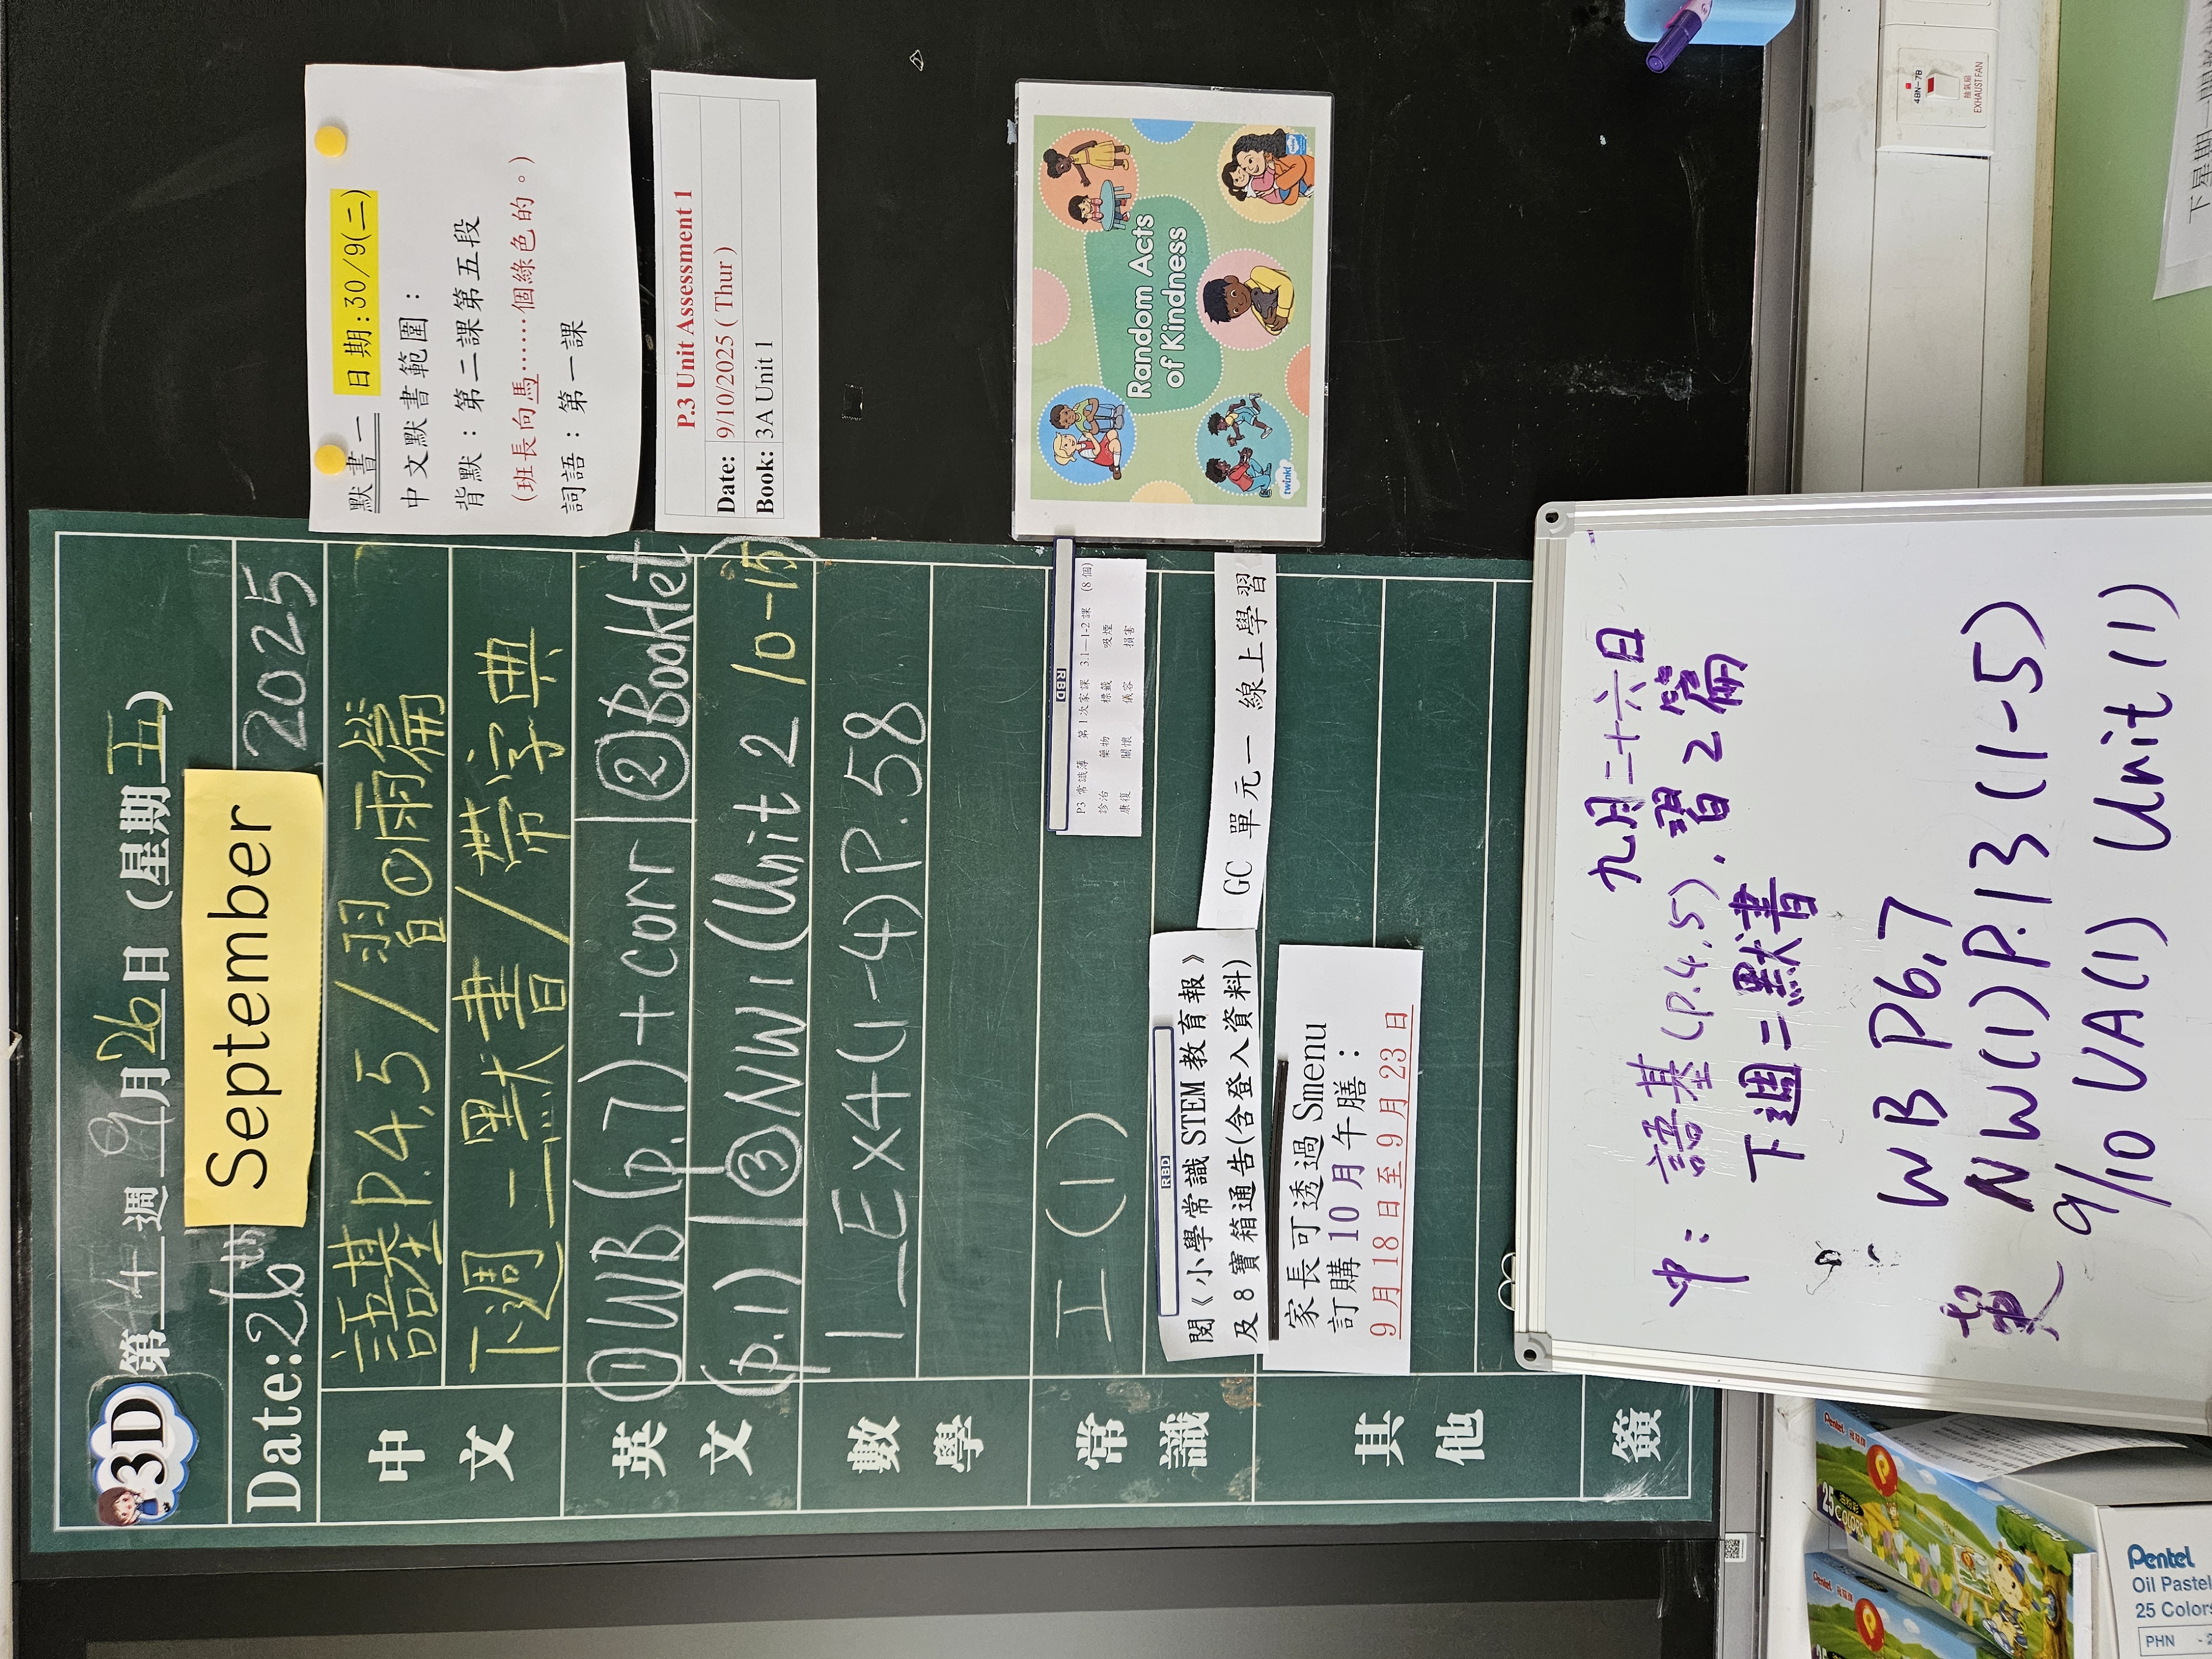 3D
第 4 週 9 月 26 日 (星期 五)
Date: 26th September 2025
中文
語基P.4,5 / 習①兩篇
下週二默書 / 帶字典
英文
① WB (p.7) + corr | ② Booklet
(p.1) | ③ NW1 (Unit 2 10-15)
數學
Ex4(1-4) P.58
常識
工(1)
RBD
P3 常識薄 第1次家課 3.1—1-2課 (8個)
診治 藥物 標籤 吸煙
康復 關懷 儀容 損害
RBD
閱《小學常識 STEM 教育報》
及 8 寶箱通告(含登入資料)
GC 單元一 線上學習
其他
家長可透過 Smenu
訂購 10 月午膳：
9 月 18 日至 9 月 23 日
簽
默書一 日期:30/9(二)
中文默書範圍：
背默：第二課第五段
(班長向馬……個綠色的。)
詞語：第一課
P.3 Unit Assessment 1
Date: 9/10/2025 ( Thur )
Book: 3A Unit 1
Random Acts
of Kindness
twinkl
九月二十六日
中： 語基 (p.4,5)，習2篇
下週二默書
WB P6,7
NW(1) P.13 (1-5)
英 9/10 UA(1) Unit 1)
4BN-7B
抽氣扇
EXHAUST FAN
下星期一
Pentel
25 COLORS
Pentel
Pentel
Oil Pastel
25 Colors
PHN